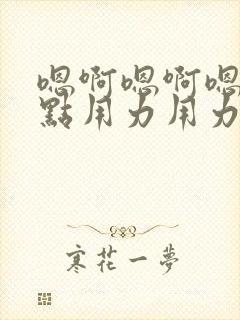 嗯啊嗯啊嗯
點用力用力
寒花一夢